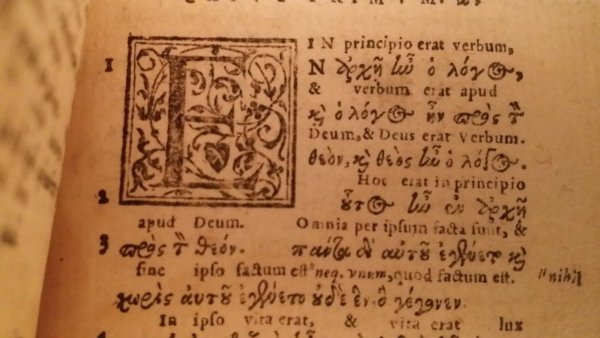 PRIMVM. α.
IN principio erat verbum,
1 EN ἀρχῇ ἦν ὁ λόγος,
& verbum erat apud
καὶ ὁ λόγος ἦν πρὸς τὸν
Deum, & Deus erat Verbum.
θεὸν, καὶ θεὸς ἦν ὁ λόγος.
Hoc erat in principio
2 οὗτος ἦν ἐν ἀρχῇ
apud Deum. Omnia per ipsum facta sunt, &
3 πρὸς τὸν θεόν. πάντα δι' αὐτοῦ ἐγένετο καὶ
sine ipso factum est neq. vnum, quod factum est. "nihil
χωρὶς αὐτοῦ ἐγένετο οὐδὲ ἓν ὃ γέγονεν.
In ipso vita erat, & vita erat lux